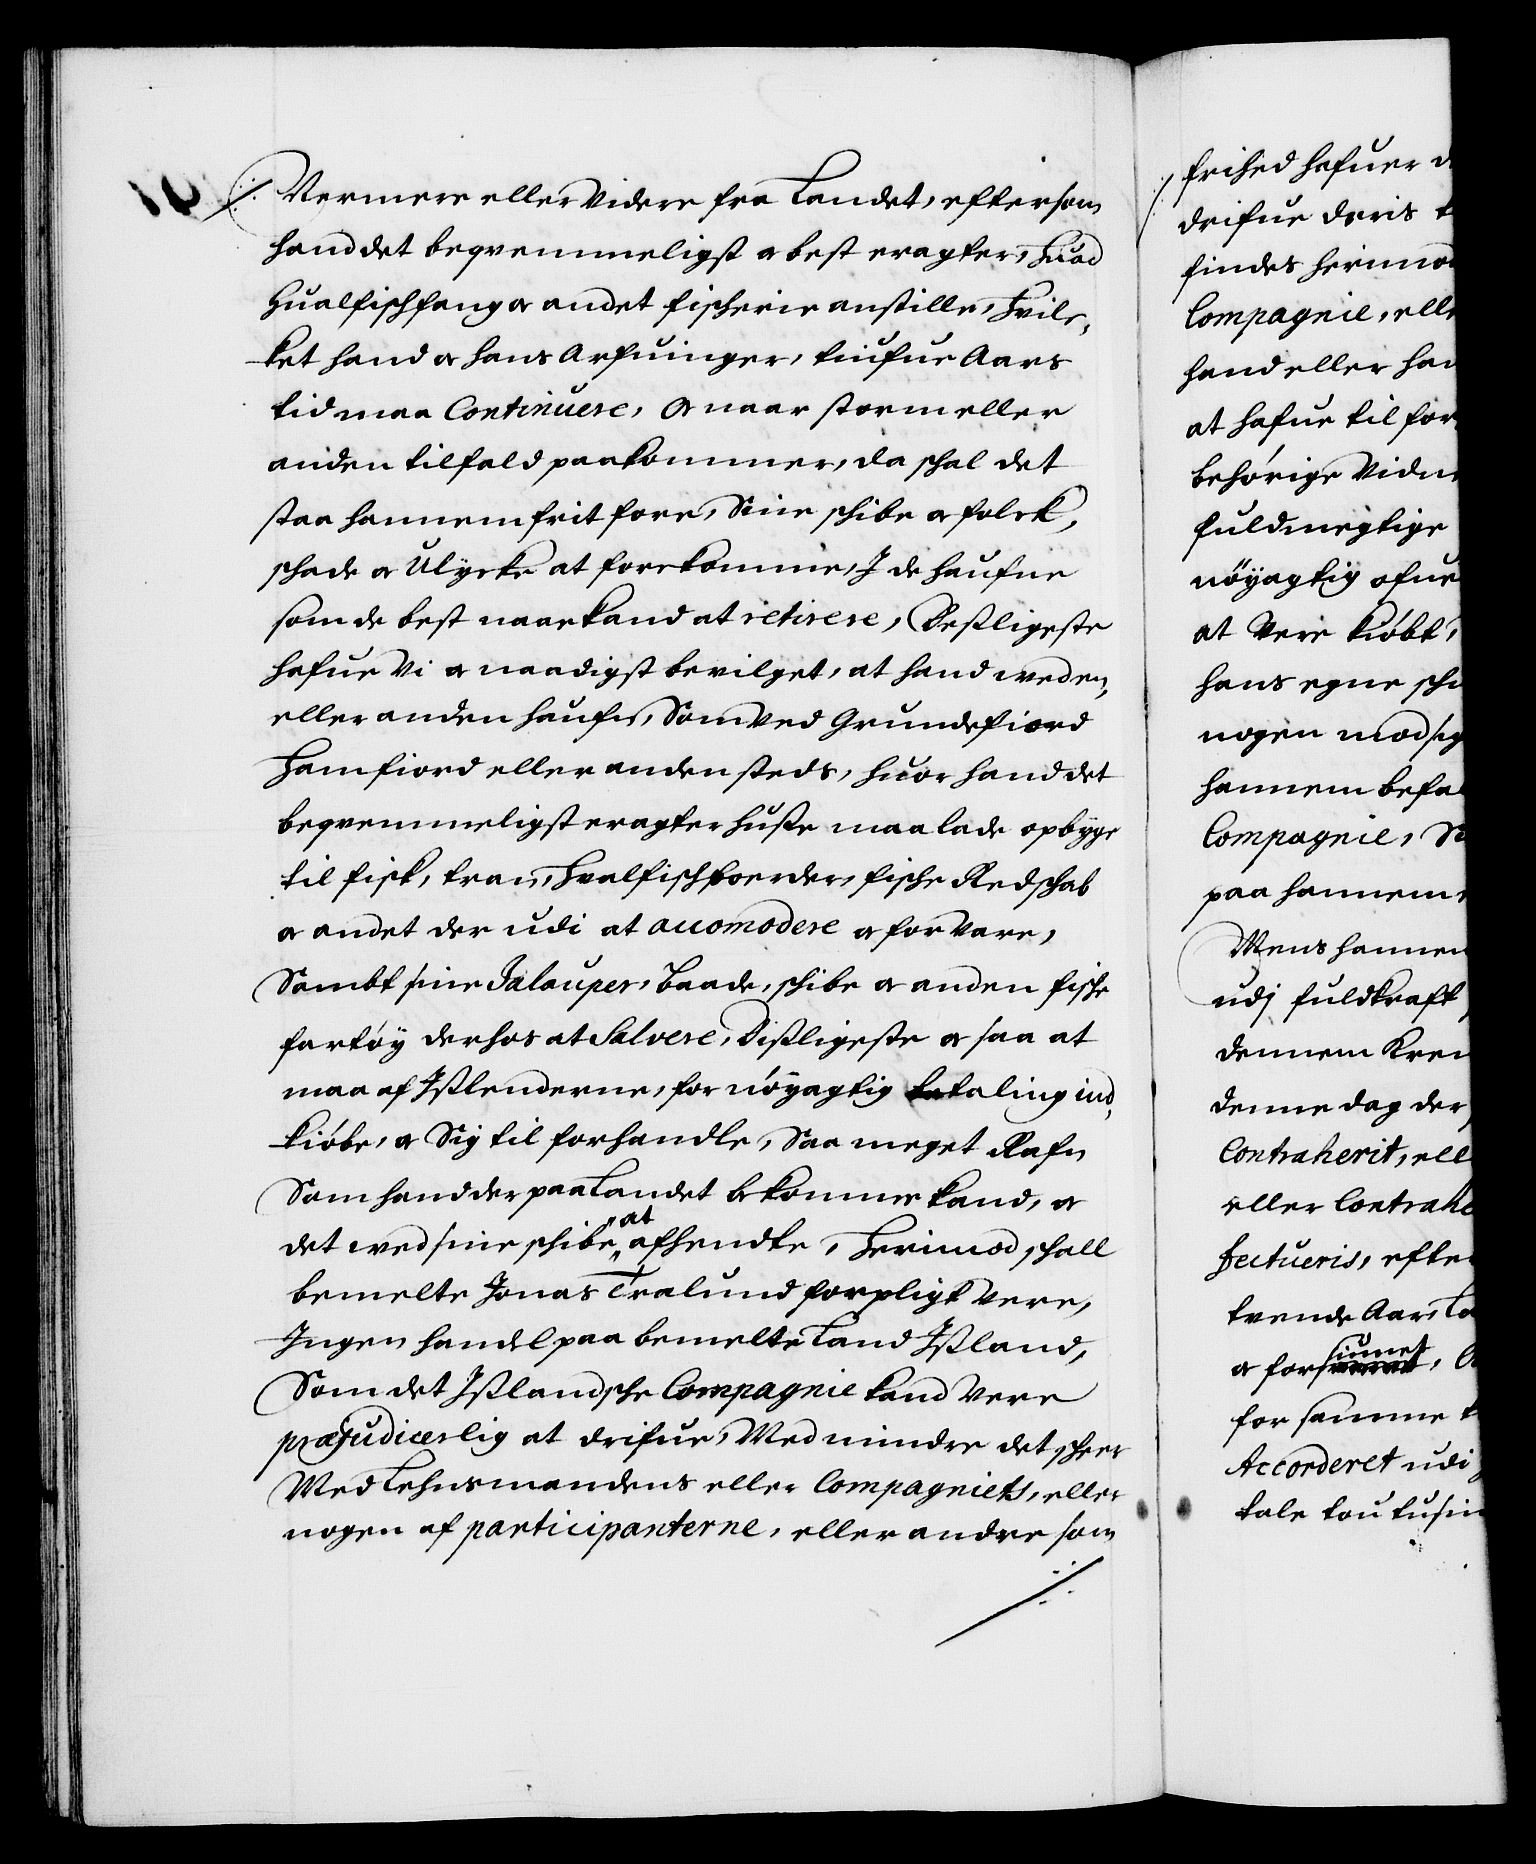 Nermere eller Videre fra Landet, eftersom
hand det beqvemmeligst oc best eragter, Huad
Hualfischfang oc andet fischerie anstille, Hvile,
ket hand oc hans Arfuinger, tiufue Aars
tid maa Continuere, Oc naar storm eller
anden tilfald paakommer, da schal det
staa hannem frit fore, Sine schibe oc folck,
schade oc Ulycke at forekomme, J de haufne
som de best naae kand at retirere, Desligeste
hafue Vi oc naadigst bevilget, at hand wed en,
eller anden haufn, Som Ved Grundefiord
Hamfiord eller anden steds, huor hand det
beqvemmeligst eragter huse maa lade opbyge
til fisk, tran, Hvalfischboerder, fische Redschab
oc andet der udi at accomodere oc forVare,
Sambt sine Jalouper, Baade, schibe oc anden fische
fartøy derhos at Salvere, Disligeste oc saa at
maa af Jslenderne, for nöyagtig betaling ind,
kiøbe, oc Sig til forhandle, Saa meget Rafn
Som hand der paa Landet bekomme kand, oc
det wed sine schibe at afhendte, Herimod schall
bemelte Jonas Tralund forpligt Vere,
Jngen handel paa bemelte Land Jsland,
Som det Jslandsche Compagnie kand Vere
præjudicerlig at drifue, Med mindre det scheer
Med Lehnsmandens eller Compagniets, eller
nogen af participanterne, eller andre som
frihed hafuer
drifue deris
findes herimod
Compagnie, elle
hand eller han
at hafue til for
behörige Vidne
fuldmegtige
nöyagtig ofue
at Vere kiøbt,
hans egne schi
nogen modsig
hannem befal
Compagnie, Sa
paa hannem
Mens hannem
udj fuldkraft
dennem
denne dag der
Contraherit, ell
eller Contrahe
fectueris, efte
tvende Aars
oc forsiunet,
for samme
Accorderet udi
tale tou tusin